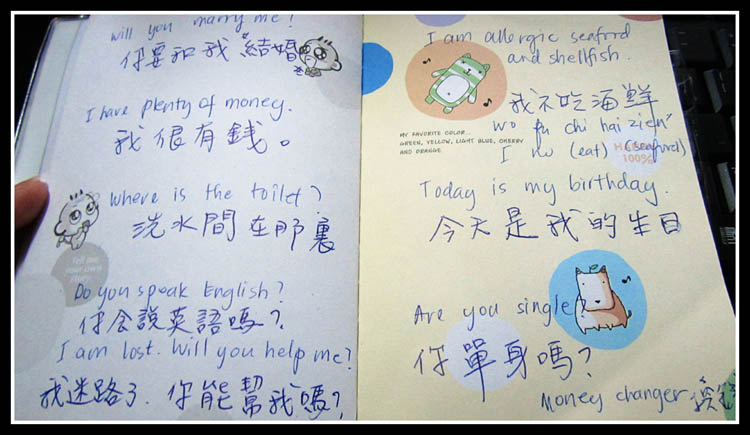 will you marry me!
你要和我 結婚
I have plenty of money.
我很有錢。
Where is the toilet?
洗水間在那裏
Tell me
your own
story
Do you speak English?
你会說英語嗎?
I am lost. Will you help me?
我迷路了. 你能幫我嗎?
I am allergic seafood
and shellfish.
我不吃海鮮
MY FAVORITE COLOR...
GREEN, YELLOW, LIGHT BLUE, CHERRY
AND ORANGE.
wo pu chi hai zien
I no (eat) (seafood)
100%
Today is my birthday.
今天是我的生日
Are you single?
你單身嗎?
Money changer